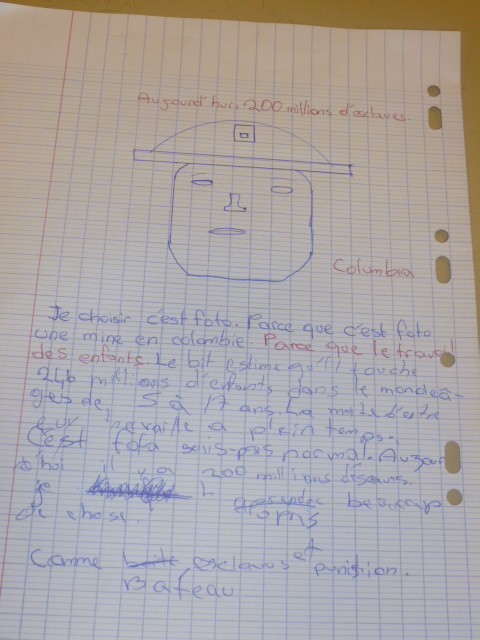 Aujourd'hui. 200 millions d'esclaves.
Columbia
Je choisir c'est foto. Parce que c'est foto
une mine en colombie. Parce que le travail
des enfants. Le bit estime qu'il touche
246 millions d'enfants dans le monde â-
gés de, 5 à 17 ans. La moitié d'entre
eux travaille a plein temps.
C'est foto sais-pas normal. Aujour
d'hoi il y a 200 millions d'esclaves.
je beaucap
de chose.
Comme esclaves et punition.
Bateau